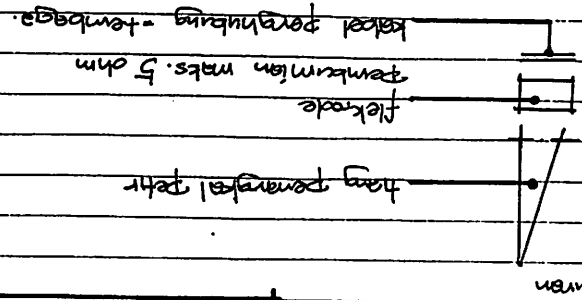 tiang penangkal petir
elektrode
pembumian maks. 5 ohm
kabel penghubung - tembaga.